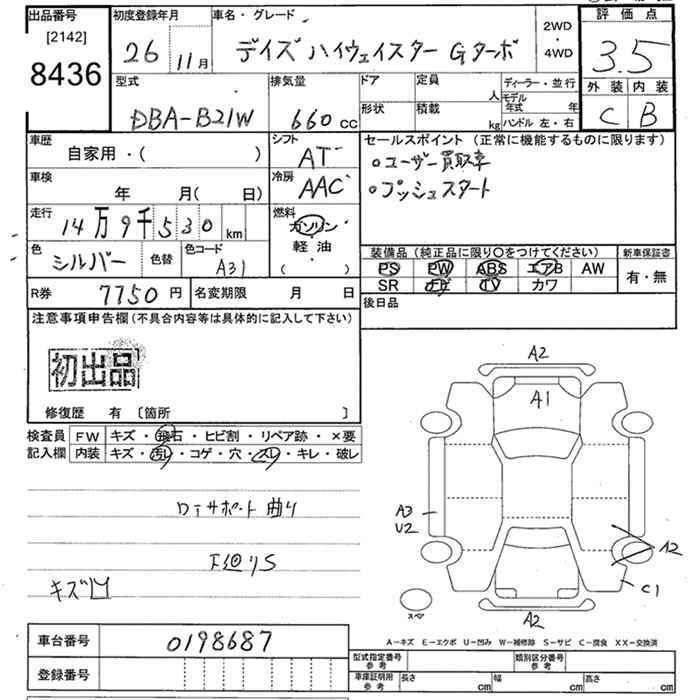 出品番号
[2142]
8436
初度登録年月
26 11月
車名・グレード
デイズ ハイウェイスター Gターボ
2WD
・
4WD
評価点
3.5
外装 内装
C B
型式
DBA-B21W
排気量
660cc
ドア
形状
定員
人
積載
kg
ディーラー・並行
モデル年式 年
ハンドル 左・右
車歴
自家用・( )
シフト
AT
車検
年 月( 日)
冷房
AAC
走行
14万9千530km
燃料
ガソリン
軽油
( )
色
シルバー
色替
色コード
A31
セールスポイント (正常に機能するものに限ります)
○ユーザー買取車
○プッシュスタート
装備品 (純正品に限り○をつけてください)
新車保証書
PS PW ABS エアB AW
有・無
SR ナビ TV カワ
R券
7750円
名変期限 月 日
後日品
注意事項申告欄(不具合内容等は具体的に記入して下さい)
初出品
修復歴 有 [箇所 ]
検査員
記入欄
FW キズ・飛石・ヒビ割・リペア跡・×要
内装 キズ・汚れ・コゲ・穴・スレ・キレ・破レ
ロアサポート曲り
下廻りS
キズ凹
A2
A1
A3
U2
A2
C1
A2
スペア
A-キズ E-エクボ U-凹み W-補修跡 S-サビ C-腐食 XX-交換済
車台番号
0198687
登録番号
型式指定番号
参考
類別区分番号
参考
車庫証明用
参考
長さ cm
幅 cm
高さ cm